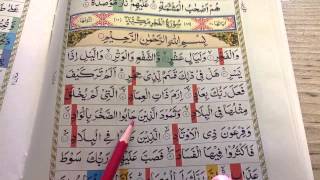 هُمْ أَصْحَابُ الْمَشْأَمَةِ عَلَيْهِمْ نَارٌ مُّؤْصَدَةٌ
سُورَةُ الْفَجْرِ مَكِّيَّةٌ
بِسْمِ اللهِ الرَّحْمٰنِ الرَّحِيْمِ
وَالْفَجْرِ وَلَيَالٍ عَشْرٍ وَّالشَّفْعِ وَالْوَتْرِ وَاللَّيْلِ إِذَا
يَسْرِ هَلْ فِي ذٰلِكَ قَسَمٌ لِّذِي حِجْرٍ أَلَمْ تَرَ كَيْفَ
فَعَلَ رَبُّكَ بِعَادٍ إِرَمَ ذَاتِ الْعِمَادِ الَّتِي لَمْ يُخْلَقْ
مِثْلُهَا فِي الْبِلَادِ وَثَمُودَ الَّذِينَ جَابُوا الصَّخْرَ بِالْوَادِ
وَفِرْعَوْنَ ذِي الْأَوْتَادِ الَّذِينَ طَغَوْا فِي الْبِلَادِ
فَأَكْثَرُوا فِيهَا الْفَسَادَ فَصَبَّ عَلَيْهِمْ رَبُّكَ سَوْطَ